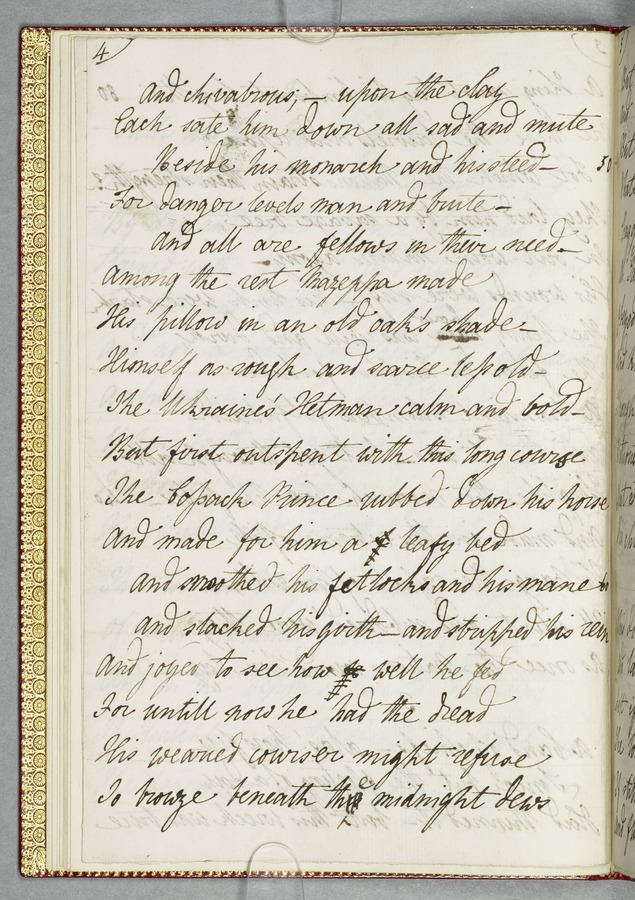 4
And chivalrous; — upon the clay
Each sate him down all sad and mute
Beside his monarch and his steed — 50
For danger levels man and brute —
And all are fellows in their need —
Among the rest Mazeppa made
His pillow in an old oak's shade —
Himself as rough and scarce less old —
The Ukraine's Hetman calm and bold —
But first outspent with this long course
The Cossack Prince rubbed down his horse
And made for him a leafy bed
And smoothed his fetlocks and his mane
And slacked his girth — and stripped his rein
And joyed to see how well he fed
For untill now he had the dread
His wearied courser might refuse
To browze beneath the midnight dews